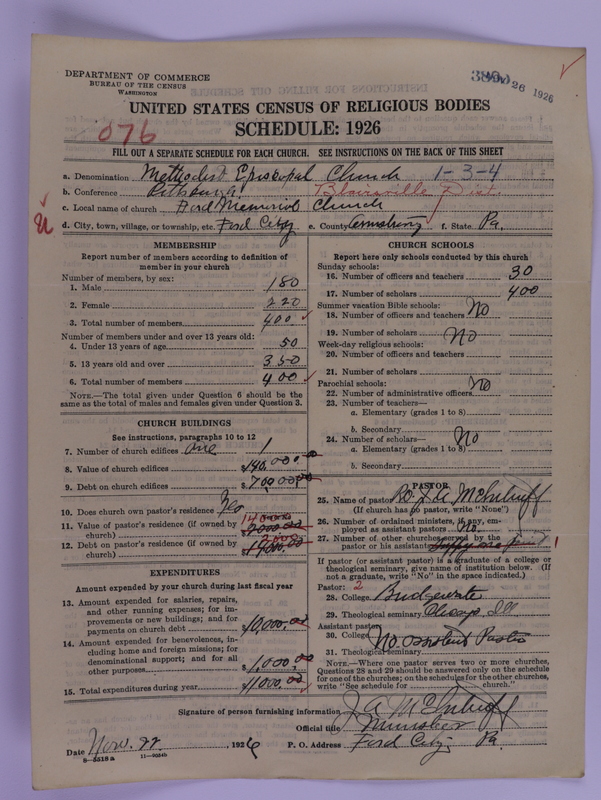 DEPARTMENT OF COMMERCE
BUREAU OF THE CENSUS
WASHINGTON
26 1926
UNITED STATES CENSUS OF RELIGIOUS BODIES
SCHEDULE: 1926
076
FILL OUT A SEPARATE SCHEDULE FOR EACH CHURCH. SEE INSTRUCTIONS ON THE BACK OF THIS SHEET
a. Denomination Methodist Episcopal Church 1-3-4
b. Conference Pittsburg Blairsville Dist.
c. Local name of church Ford Memorial Church
d. City, town, village, or township, etc. Ford City e. County Armstrong f. State Pa.
MEMBERSHIP
Report number of members according to definition of member in your church
Number of members, by sex:
1. Male 180
2. Female 220
3. Total number of members 400
Number of members under and over 13 years old:
4. Under 13 years of age 50
5. 13 years old and over 350
6. Total number of members 400
NOTE.—The total given under Question 6 should be the same as the total of males and females given under Question 3.
CHURCH BUILDINGS
See instructions, paragraphs 10 to 12
7. Number of church edifices one 1
8. Value of church edifices $140,000.00
9. Debt on church edifices $
10. Does church own pastor's residence Yes
11. Value of pastor's residence (if owned by church) $
12. Debt on pastor's residence (if owned by church) $
EXPENDITURES
Amount expended by your church during last fiscal year
13. Amount expended for salaries, repairs, and other running expenses; for improvements or new buildings; and for payments on church debt $10,000.00
14. Amount expended for benevolences, including home and foreign missions; for denominational support; and for all other purposes $1,000.00
15. Total expenditures during year $11000.00
CHURCH SCHOOLS
Report here only schools conducted by this church
Sunday schools:
16. Number of officers and teachers 30
17. Number of scholars 400
Summer vacation Bible schools:
18. Number of officers and teachers No
19. Number of scholars No
Week-day religious schools:
20. Number of officers and teachers
21. Number of scholars
Parochial schools: No
22. Number of administrative officers
23. Number of teachers—
a. Elementary (grades 1 to 8)
b. Secondary
24. Number of scholars— No
a. Elementary (grades 1 to 8)
b. Secondary
PASTOR
25. Name of pastor
(If church has no pastor, write "None")
26. Number of ordained ministers, if any, employed as assistant pastors No.
27. Number of other churches served by the pastor or his assistant 1
If pastor (or assistant pastor) is a graduate of a college or theological seminary, give name of institution below. (If not a graduate, write "No" in the space indicated.)
Pastor: 2
28. College Bridgewater
29. Theological seminary Chicago, Ill
Assistant pastor:
30. College No assistant Pastor
31. Theological seminary
NOTE.—Where one pastor serves two or more churches, Questions 28 and 29 should be answered only on the schedule for one of the churches; on the schedules for the other churches, write "See schedule for church."
Signature of person furnishing information
Official title Minister
Date Nov. 22, 1926 P. O. Address Ford City Pa.
8—5518a